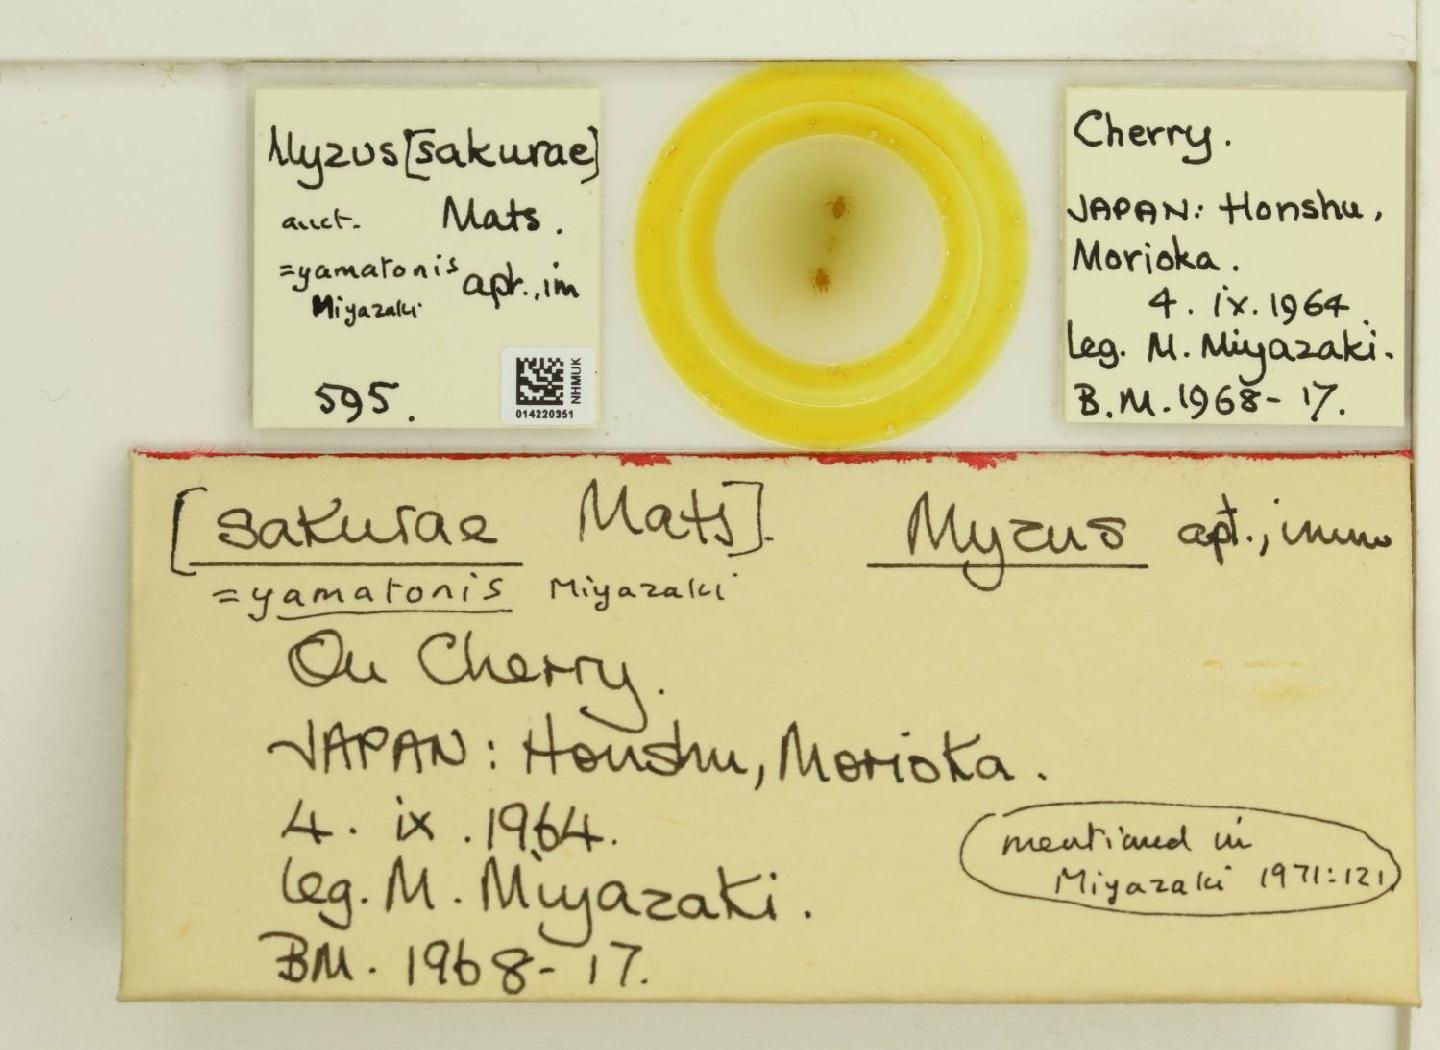 Myzus [sakurae]
auct. Mats.
=yamatonis apt., im
Miyazaki
595.
NHMUK
014220351
Cherry.
JAPAN: Honshu,
Morioka.
4. ix. 1964.
leg. M. Miyazaki.
B.M. 1968-17.
[sakurae Mats]. Myzus apt., imm
=yamatonis Miyazaki
On Cherry.
JAPAN: Honshu, Morioka.
4. ix. 1964.
leg. M. Miyazaki.
BM. 1968-17.
mentioned in
Miyazaki 1971:121